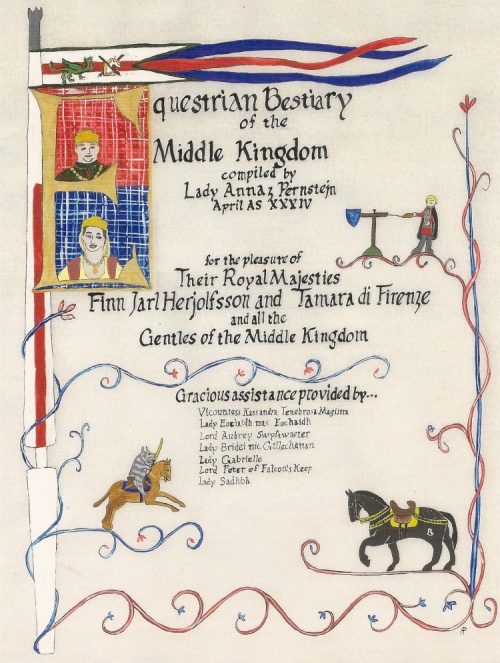 Equestrian Bestiary
of the
Middle Kingdom
compiled by
Lady Anna z Pernstejn
April AS XXXIV
for the pleasure of
Their Royal Majesties
Finn Jarl Herjolfsson and Tamara di Firenze
and all the
Gentles of the Middle Kingdom
Gracious assistance provided by...
Vicountess Kassandra Tenebrosa Magistra
Lady Eochaidh mac Eochaidh
Lord Aubrey Swyftwater
Lady Bridei nic Gillechattan
Lady Gabrielle
Lord Peter of Falcon's Keep
Lady Sadhbh